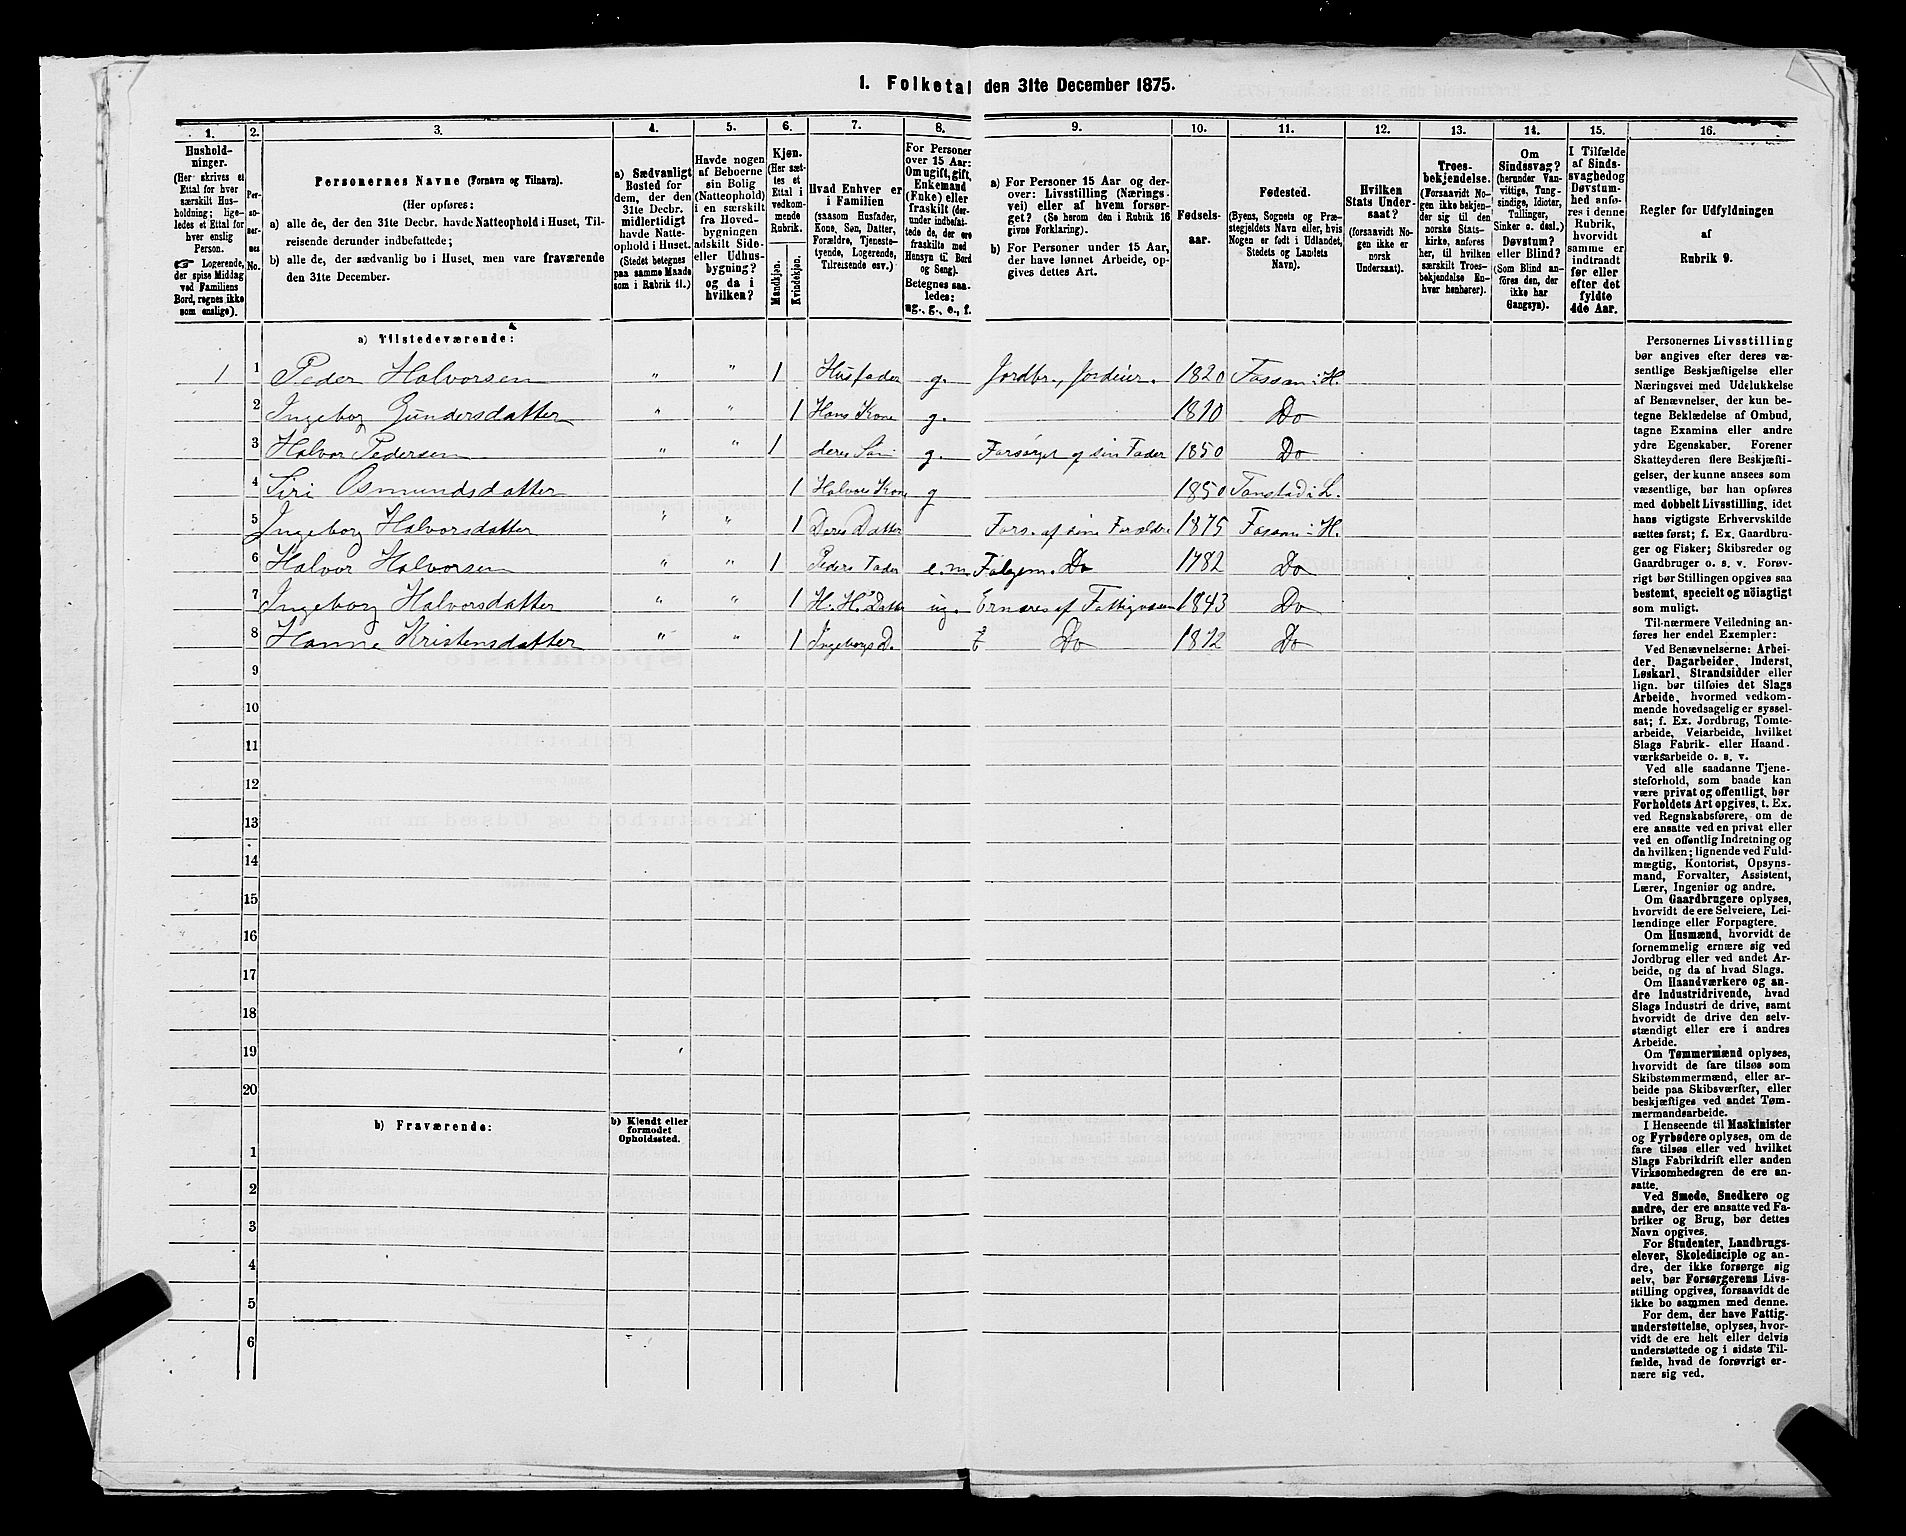 1. Folketal den 31te December 1875.
1. 2. 3. 4. 5. 6. 7. 8. 9. 10. 11. 12. 13. 14. 15. 16.
Hushold-
ninger.
(Her skrives et
Ettal for hver
særskilt Hus-
holdning; lige-
ledes et Ettal for
hver enslig
Person.
☞ Logerende,
der spise Middag
ved Familiens
Bord, regnes ikke
som enslige).
Per-
so-
ner-
nes
No.
Personernes Navne (Fornavn og Tilnavn).
(Her opføres:
a) alle de, der den 31te Decbr. havde Natteophold i Huset, Til-
reisende derunder indbefattede;
b) alle de, der sædvanlig bo i Huset, men vare fraværende
den 31te December.
a) Sædvanligt
Bosted for
dem, der den
31te Decbr.
midlertidigt
havde Natte-
ophold i Huset.
(Stedet betegnes
paa samme Maade
som i Rubrik 11.)
Havde nogen
af Beboerne
sin Bolig
(Natteophold)
i en særskilt
fra Hoved-
bygningen
adskilt Side-
eller Udhus-
bygning?
og da i
hvilken?
Kjøn.
(Her sæt-
tes et
Ettal i
vedkom-
mende
Rubrik.
Mandkjøn.
Kvindekjøn.
Hvad Enhver er
i Familien
(saasom Husfader,
Kone, Søn, Datter,
Forældre, Tjeneste-
tyende, Logerende,
Tilreisende osv.)
For Personer
over 15 Aar:
Om ugift, gift,
Enkemand
(Enke) eller
fraskilt (der-
under indbefat-
tede de, der ere
fraskilte med
Hensyn til Bord
og Seng).
Betegnes saa-
ledes:
ug., g., e., f.
a) For Personer 15 Aar og der-
over: Livsstilling (Nærings-
vei) eller af hvem forsør-
get? (Se herom den i Rubrik 16
givne Forklaring).
b) For Personer under 15 Aar,
der have lønnet Arbeide, op-
gives dettes Art.
Fødsels-
aar.
Fødested.
(Byens, Sognets og Præ-
stegjeldets Navn eller, hvis
Nogen er født i Udlandet,
Stedets og Landets
Navn).
Hvilken
Stats Under-
saat?
(forsaavidt No-
gen ikke er
norsk
Undersaat).
Troes-
bekjendelse.
(Forsaavidt No-
gen ikke bekjen-
der sig til den
norske Stats-
kirke, anføres
her, til hvilken
særskilt Troes-
bekjendelse En-
hver henhører).
Om
Sindssvag?
(herunder Van-
vittige, Tung-
sindige, Idioter,
Tullinger,
Sinker o. desl.)
Døvstum?
eller Blind?
(Som Blind an-
føres den, der
ikke har
Gangsyn).
I Tilfælde
af Sinds-
svaghed og
Døvstum-
hed anfø-
res i denne
Rubrik,
hvorvidt
samme er
indtraadt
før eller
efter det
fyldte
4de Aar.
Regler for Udfyldningen
af
Rubrik 9.
a) Tilstedeværende:
1 1 Peder Halvorsen " " 1 Husfader g. Jordbr., Jordeier. 1820 Fossan i H.
2 Ingeborg Gundersdatter " " 1 Hans Kone g. 1810 Do
3 Halvor Pedersen " " 1 deres Søn g. Forsørget af sin Fader 1850 Do
4 Siri Osmundsdatter 1 Halvors Kone g 1850 Fonstad i L.
5 Ingeborg Halvorsdatter " " 1 Deres Datter Fors. af sine Forældre 1875 Fossan i H.
6 Halvor Halvorsen " " 1 Peders Fader e.m. Do 1782 Do
7 Ingeborg Halvorsdatter " " 1 H. H.s Datter ug. Ernæres af Fattigvæsen 1843 Do
8 Hanne Kristensdatter " " 1 Ingeborgs D. Do 1872 Do
9
10
11
12
13
14
15
16
17
18
19
20
b) Fraværende:
b) Kjendt eller
formodet
Opholdssted.
1
2
3
4
5
6
Personernes Livsstilling
bør angives efter deres væ-
sentlige Beskjæftigelse eller
Næringsvei med Udelukkelse
af Benævnelser, der kun be-
tegne Beklædelse af Ombud,
tagne Examina eller andre
ydre Egenskaber. Forener
Skatteyderen flere Beskjæfti-
gelser, der kunne ansees som
væsentlige, bør han opføres
med dobbelt Livsstilling, idet
hans vigtigste Erhvervskilde
sættes først; f. Ex. Gaardbru-
ger og Fisker; Skibsreder og
Gaardbruger o. s. v. Forøv-
rigt bør Stillingen opgives saa
bestemt, specielt og nöiagtigt
som muligt.
Til nærmere Veiledning an-
føres her endel Exempler:
Ved Benævnelserne: Arbei-
der, Dagarbeider, Inderst,
Løskarl, Strandsidder eller
lign. bør tilføies det Slags
Arbeide, hvormed vedkom-
mende hovedsagelig er syssel-
sat; f. Ex. Jordbrug, Tomte-
arbeide, Veiarbeide, hvilket
Slags Fabrik- eller Haand-
værksarbeide o. s. v.
Ved alle saadanne Tjene-
steforhold, som baade kan
være privat og offentligt, bør
Forholdets Art opgives, t. Ex.
ved Regnskabsførere, om de
ere ansatte ved en privat eller
ved en offentlig Indretning og
da hvilken; lignende ved Fuld-
mægtig, Kontorist, Opsyns-
mand, Forvalter, Assistent,
Lærer, Ingeniør og andre.
Om Gaardbrugere oplyses,
hvorvidt de ere Selveiere, Lei-
lændinge eller Forpagtere.
Om Husmænd, hvorvidt de
fornemmelig ernære sig ved
Jordbrug eller ved andet Ar-
beide, og da af hvad Slags.
Om Haandværkere og an-
dre Industridrivende, hvad
Slags Industri de drive, samt
hvorvidt de drive den selv-
stændigt eller ere i andres
Arbeide.
Om Tømmermænd oplyses,
hvorvidt de fare tilsøs som
Skibstømmermænd, eller ar-
beide paa Skibsværfter, eller
beskjæftiges ved andet Tøm-
mermandsarbeide.
I Henseende til Maskinister
og Fyrbødere oplyses, om de
fare tilsøs eller ved hvilket
Slags Fabrikdrift eller anden
Virksomhedsgren de ere an-
satte.
Ved Smede, Snedkere og
andre, der ere ansatte ved Fa-
briker og Brug, bør dettes
Navn opgives.
For Studenter, Landbrugs-
elever, Skoledisciple og an-
dre, der ikke forsørge sig
selv, bør Forsørgerens Livs-
stilling opgives, forsaavidt de
ikke bo sammen med denne.
For dem, der have Fattig-
understøttelse, oplyses, hvor-
vidt de ere helt eller delvis
understøttede og i sidste Til-
fælde, hvad de forøvrigt er-
nære sig ved.